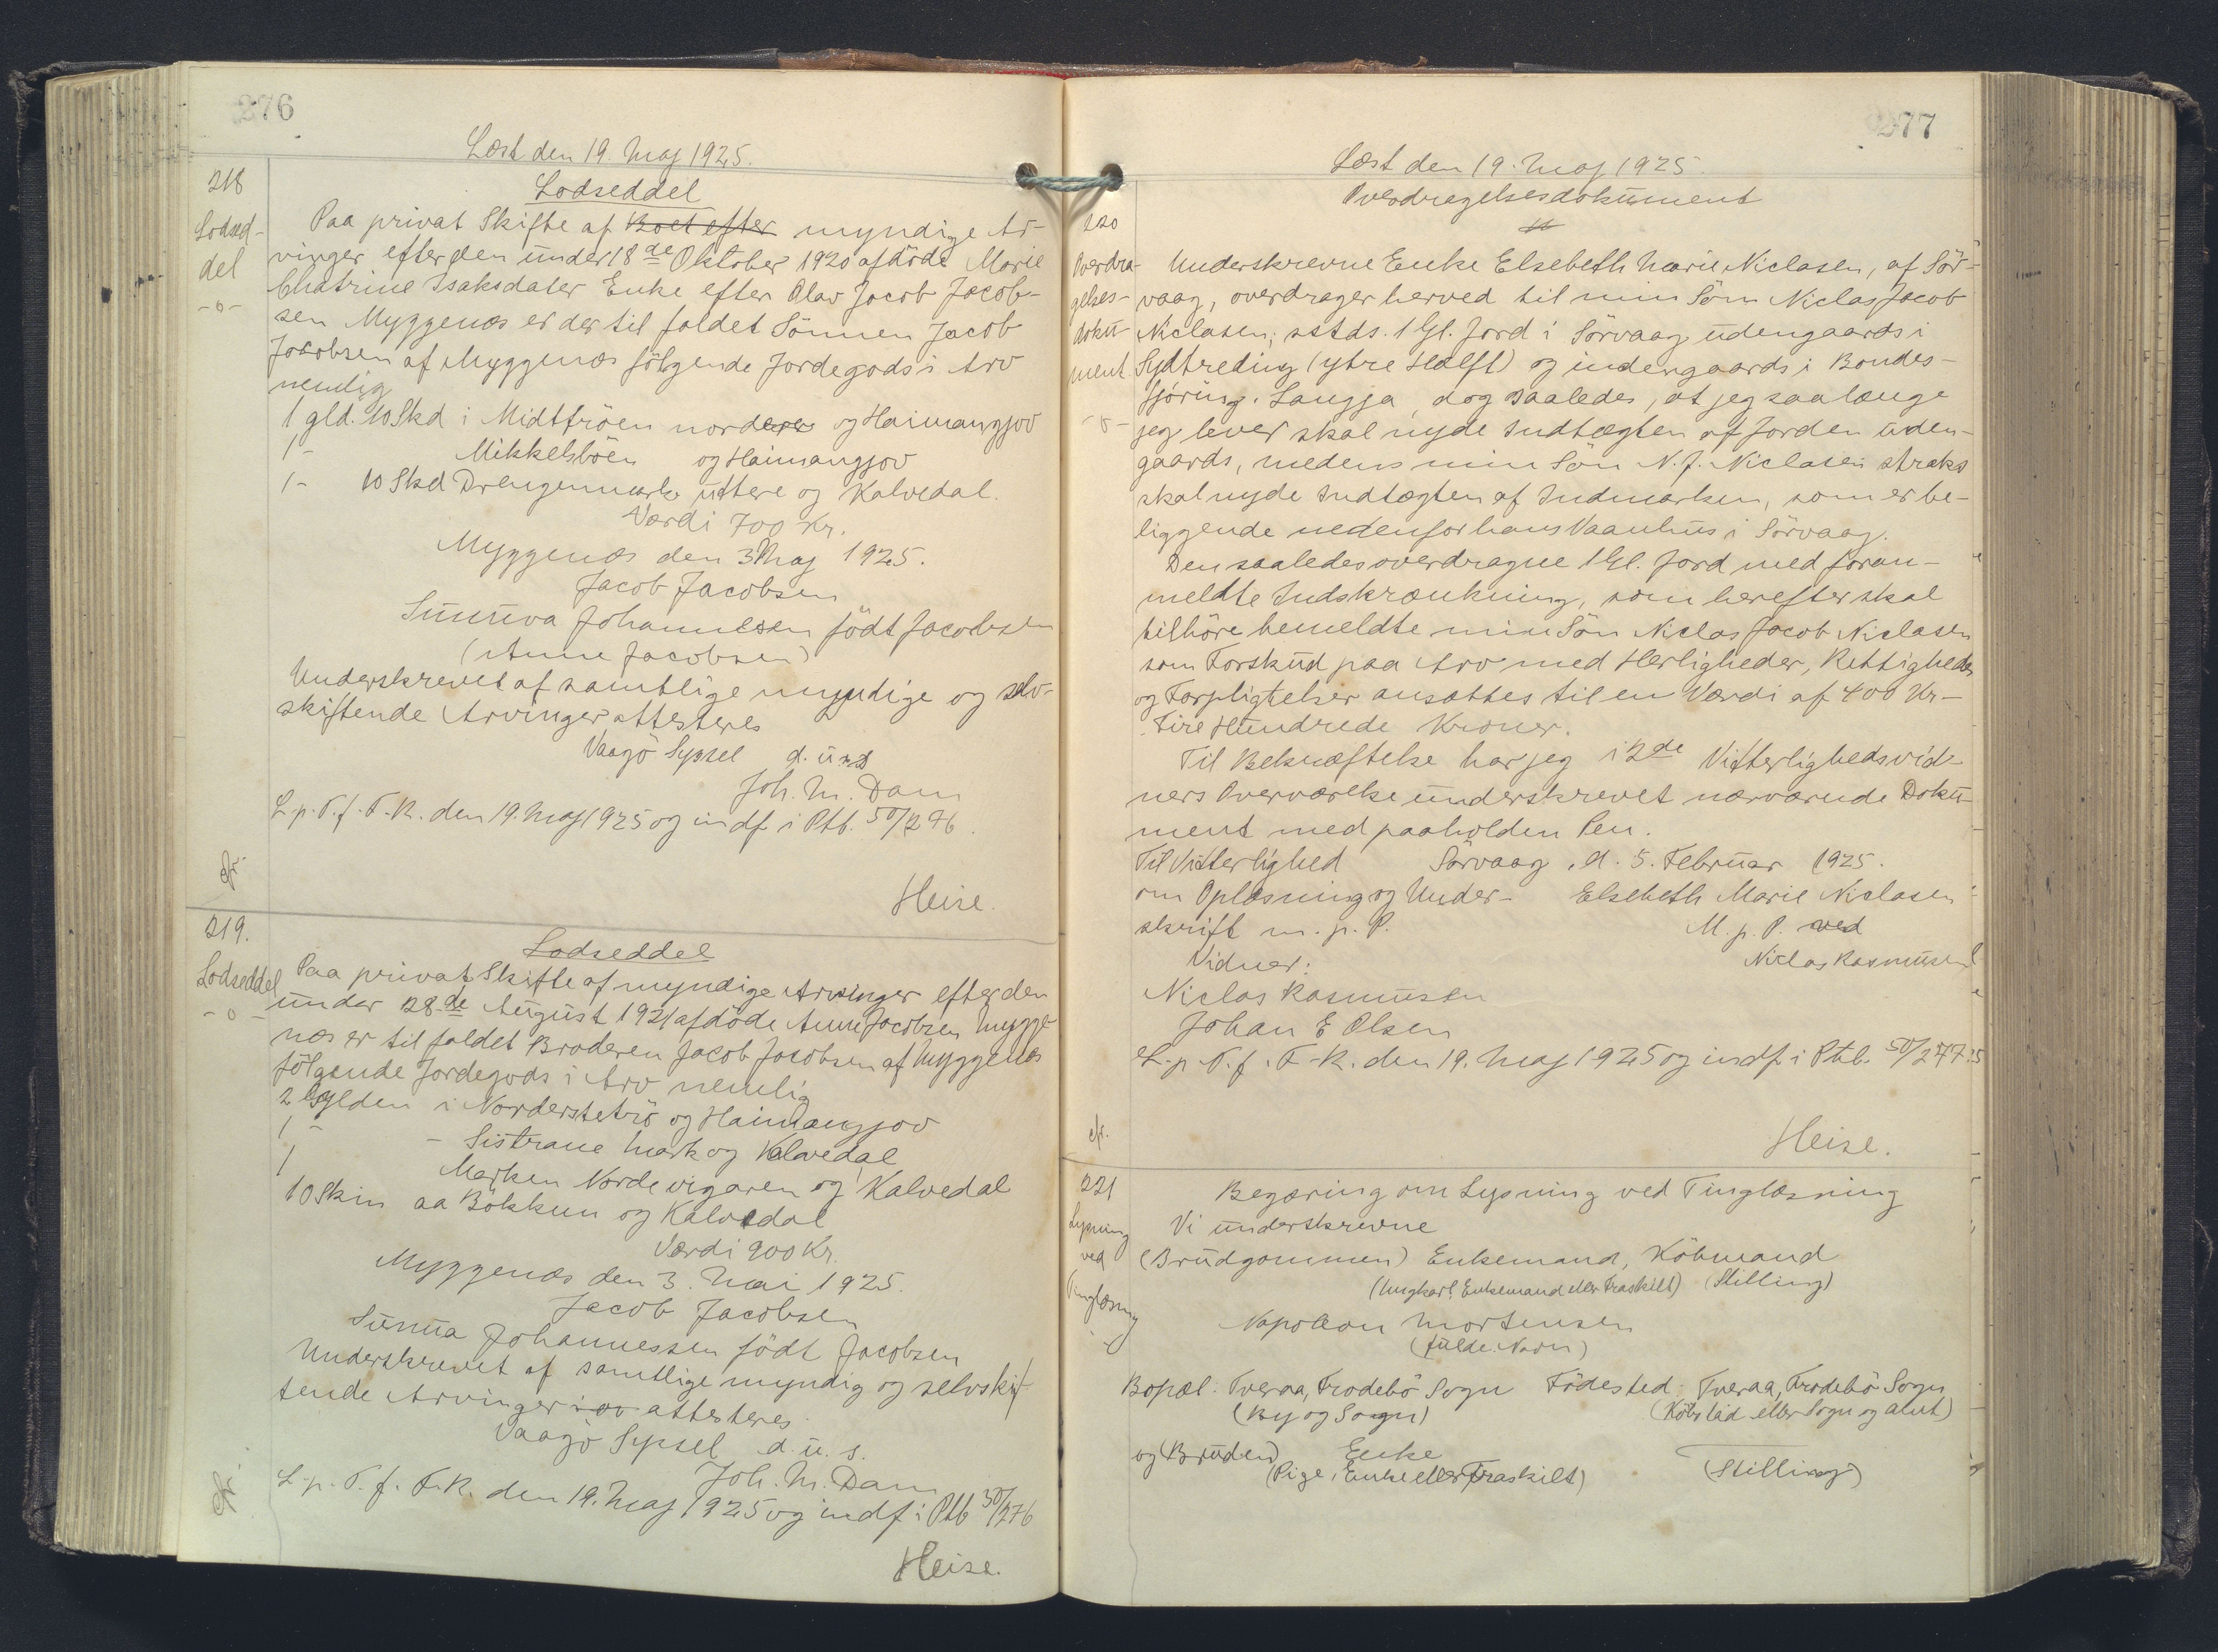 276
Læst den 19. Maj 1925.
218
Lodsed-
del
-o-
Lodseddel
Paa privat Skifte af Boet efter myndige Ar-
vinger efter den under 18de Oktober 1920 afdöde Marie
Chatrine Isaksdater Enke efter Olav Jacob Jacob-
sen Myggenæs er der til faldet Sönnen Jacob
Jacobsen af Myggenæs fölgende Jordegods i Arv
nemlig
1 gld. 10 Skd i Midtfröen nordere og Haimangjov
1 - Mikkelsböen og Haimangjov
1 - 10 Skd Drengemark uttere og Kalvedal.
Værdi 700 Kr.
Myggenæs den 3 Maj 1925.
Jacob Jacobsen
Sunnva Johannesen födt Jacobsen
(Anne Jacobsen)
Underskrevet af samtlige myndige og selv-
skiftende Arvinger attesteres
Vaagö Syssel d. u. s
Joh. M. Dam
L. p. T. f. F. R. den 19. Maj 1925 og indf. i Ptb. 50/276.
cfr.
Heise.
219.
Lodseddel
- o -
Lodseddel
Paa privat Skifte af myndige Arvinger efter den
under 28de August 1921 afdöde Anne Jacobsen Mygge-
næs er til faldet Broderen Jacob Jacobsen af Myggenæs
fölgende Jordegods i Arv nemlig
2 Gylden i Norderstetrö og Haimangjov
1 - - Sistrane Mark og Kalvedal
1 Marken Norde vegaren og Kalvedal
10 Skin aa Bökkun og Kalvedal
Værdi 900 Kr.
Myggenæs den 3. Mai 1925.
Jacob Jacobsen
Sunnua Johannessen födt Jacobsen
Underskrevet af samtlige myndig og selvskif-
tende Arvinger attesteres
Vaagö Syssel d. u. s.
Joh. M. Dam
L. p. T. f. F. R. den 19. Maj 1925 og indf i Ptb 50/276
cfr.
Heise.
277
Læst den 19. Maj 1925.
Overdragelsesdokument
220
Overdra-
gelses-
doku-
ment
-o-
Underskrevne Enke Elsebeth Marie Niclasen, af Sör-
vaag, overdrager herved til min Sön Niclas Jacob
Niclasen, sstds. 1 Gl. Jord i Sörvaag udengaards i
Sydtreding (ytre Hälft) og indengaards i Bondes-
fjöring. Laugja, dog saaledes, at jeg saalænge
jeg lever skal nyde Indtægten af Jorden uden-
gaards, medens min Sön N. J. Niclasen straks
skal nyde Indtægten af Indmarken, som er be-
liggende nedenfor hans Vaanhus i Sörvaag.
Den saaledes overdragne 1 Gl. Jord med foran-
meldte Indskrænkning, som herefter skal
tilhöre bemeldte min Sön Niclas Jacob Niclasen
som Forskud paa Arv med Herligheder, Rettigheder
og Forpligtelser ansættes til en Værdi af 400 Kr-
Fire Hundrede Kroner.
Til Bekræftelse har jeg i 2de Vitterlighedsvid-
ners Overværelse underskrevet nærværende Doku-
ment med paaholden Pen.
Til Vitterlighed Sörvaag, d. 5. Februar 1925.
om Oplæsning og Under- Elsebeth Marie Niclasen
skrift m. p. P. M. p. P. ved
Vidner: Niclas Rasmussen
Niclas Rasmussen
Johan E Olsen
L. p. T. f. F. R. den 19. Maj 1925 og indf. i Ptb. 50/277.
cfr.
Heise.
221
Lysning
ved
Tinglæsning
Begæring om Lysning ved Tinglæsning
Vi underskrevne
(Brudgommen) Enkemand, Köbmand
(Ungkarl, Enkemand eller Fraskilt) (Stilling)
Napoleon Mortensen
(fulde Navn)
Bopæl: Tveraa, Frodebö Sogn Födested: Tveraa, Frodebö Sogn
(By og Sogn) (Köbstad eller Sogn og Amt)
og (Bruden) Enke
(Pige, Enke eller Fraskilt) (Stilling)